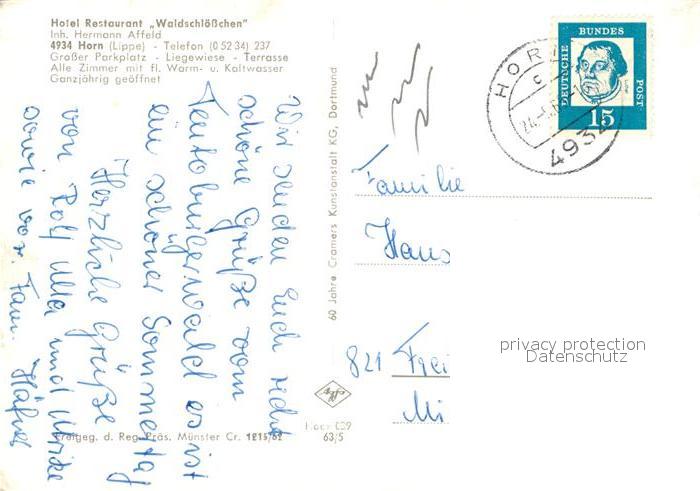 Hotel Restaurant „Waldschlößchen"
Inh. Hermann Affeld
4934 Horn (Lippe) - Telefon (0 52 34) 237
Großer Parkplatz - Liegewiese - Terrasse
Alle Zimmer mit fl. Warm- u. Kaltwasser
Ganzjährig geöffnet
Wir senden Euch recht
schöne Grüße vom
Teutoburgerwald es ist
ein schöner Sommertag
Herzliche Grüße
von Rolf Ulla und Ulrike
sowie von Fam. Häfner
60 Jahre Cramers Kunstanstalt KG, Dortmund
HORN
4934
DEUTSCHE BUNDES POST
15
Familie
Hans
821 Frei
Mi
privacy protection
Datenschutz
Freigeg. d. Reg. Präs. Münster Cr. 1215/62
63/5